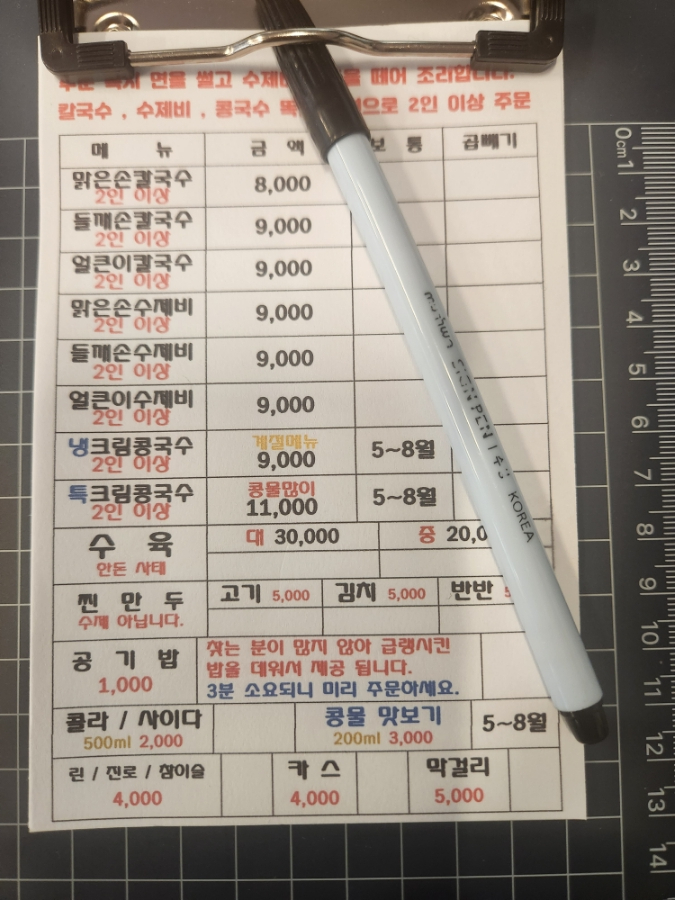 연을 썰고 떼어 조리합니다.
칼국수 , 수제비 , 콩국수 2인 이상 주문
메 뉴 금 액 보 통 곱빼기
맑은손칼국수 8,000
2인 이상
들깨손칼국수 9,000
2인 이상
얼큰이칼국수 9,000
2인 이상
맑은손수제비 9,000
2인 이상
들깨손수제비 9,000
2인 이상
얼큰이수제비 9,000
2인 이상
냉크림콩국수 계절메뉴 5~8월
2인 이상 9,000
특크림콩국수 콩물많이 5~8월
2인 이상 11,000
수 육 대 30,000 중
안돈 사태
찐 만 두 고기 5,000 김치 5,000 반반
수제 아닙니다.
공 기 밥 찾는 분이 많지 않아 급랭시킨
밥을 데워서 제공 됩니다.
1,000 3분 소요되니 미리 주문하세요.
콜라 / 사이다 콩물 맛보기 5~8월
500ml 2,000 200ml 3,000
린 / 진로 / 참이슬 카 스 막걸리
4,000 4,000 5,000
KOREA
0cm1
2
3
4
5
6
7
8
9
10
11
12
13
14